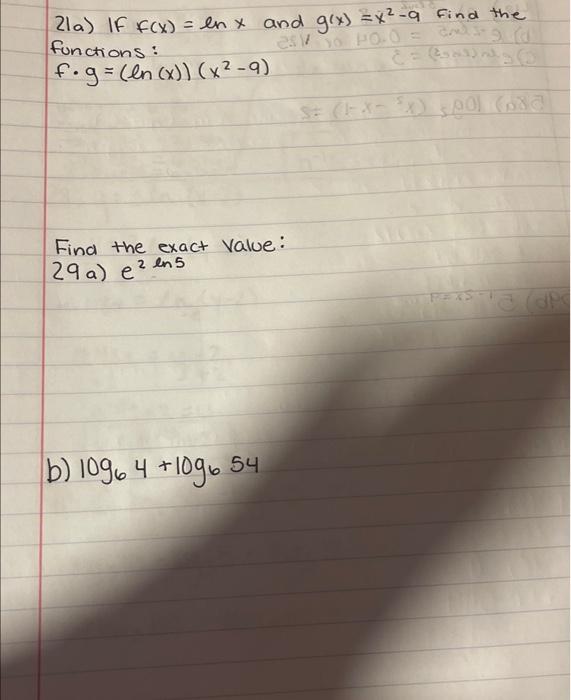 21a) If f(x) = ln x and g(x) = x² - 9 Find the
functions:
f · g = (ln(x))(x² - 9)
Find the exact value:
29a) e² ln 5
b) log₆ 4 + log₆ 54